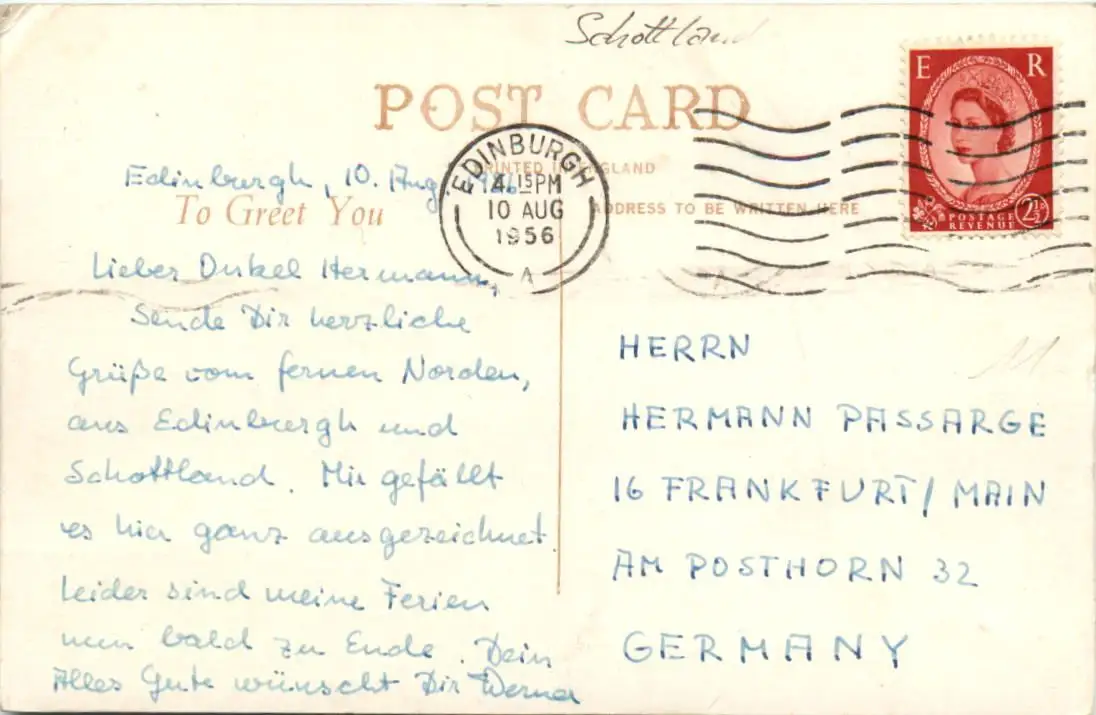 Schottland
E R
POST CARD
PRINTED IN ENGLAND
EDINBURGH
4.15PM
10 AUG
1956
A
ADDRESS TO BE WRITTEN HERE
POSTAGE
REVENUE
2½D
Edinburgh, 10. Aug
To Greet You
Lieber Onkel Hermann,
Sende Dir herzliche
Grüße vom fernen Norden,
aus Edinburgh und
Schottland. Mir gefällt
es hier ganz ausgezeichnet.
Leider sind meine Ferien
nun bald zu Ende. Dein
Alles Gute wünscht Dir Werner
HERRN
HERMANN PASSARGE
16 FRANKFURT/MAIN
AM POSTHORN 32
GERMANY